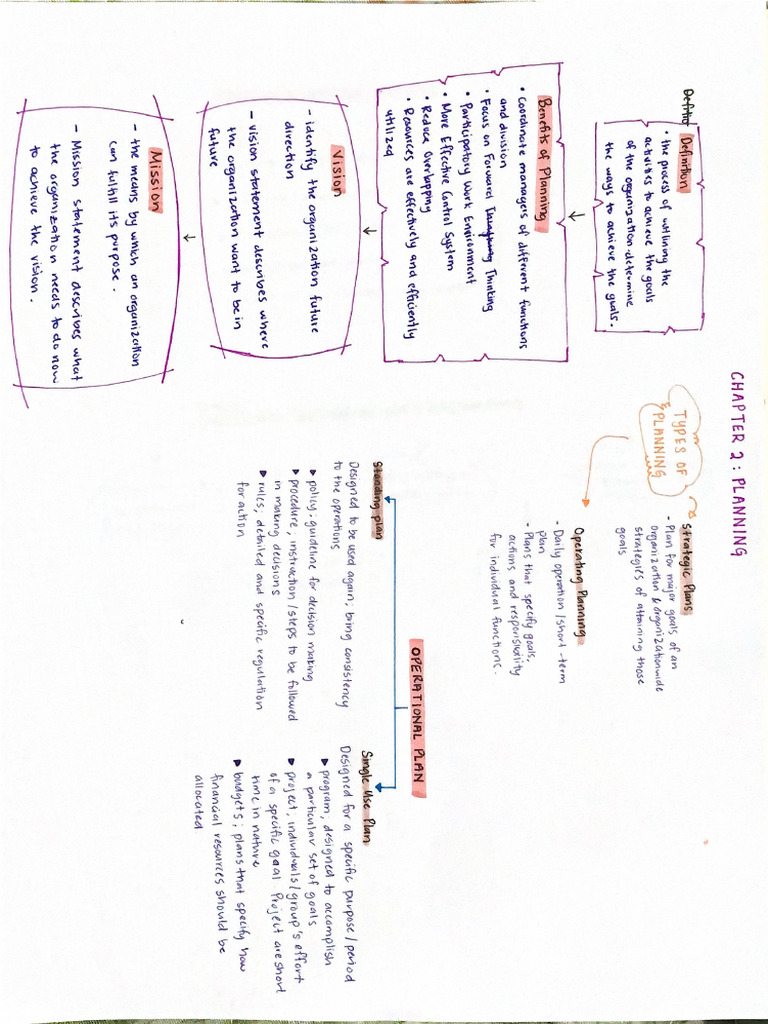 CHAPTER 2 : PLANNING
Definition
• the process of outlining the
activities to achieve the goals
of the organization-determine
the ways to achieve the goals.
Benefits of Planning
• Coordinate managers of different functions
and division
• Focus on Forward Thinking
• Participatory Work Environment
• More Effective Control System
• Reduce Overlapping
• Resources are effectively and efficiently
utilized
Vision
- identify the organization future
direction
- vision statement describes where
the organization want to be in
future
Mission
- the means by which an organization
can fulfill its purpose.
- Mission statement describes what
the organization needs to do now
to achieve the vision.
TYPES OF
PLANNING
Strategic Plans
- Plan for major goals of an
organization & organizationwide
strategies of attaining those
goals
Operating Planning
- Daily operation / short-term
plan
- Plans that specify goals,
actions and responsibility
for individual functions.
OPERATIONAL PLAN
Standing plan
Designed to be used again; bring consistency
to the operations
▶ policy; guideline for decision making
▶ procedure, instruction / steps to be followed
in making decisions
▶ rules, detailed and specific regulation
for action
Single Use Plan
Designed for a specific purpose / period
▶ program, designed to accomplish
a particular set of goals
▶ project, individuals / group's effort
of a specific goal Project are short
time in nature
▶ budgets; plans that specify how
financial resources should be
allocated